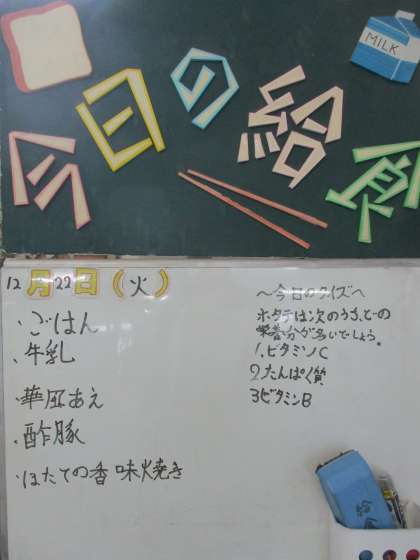 今日の給食
MILK
12月22日(火)
・ごはん
・牛乳
・華風あえ
・酢豚
・ほたての香味焼き
〜今日のクイズへ
ホタテは次のうち、どの
栄養分が多いでしょう。
1.ビタミンC
2.たんぱく質
3ビタミンB